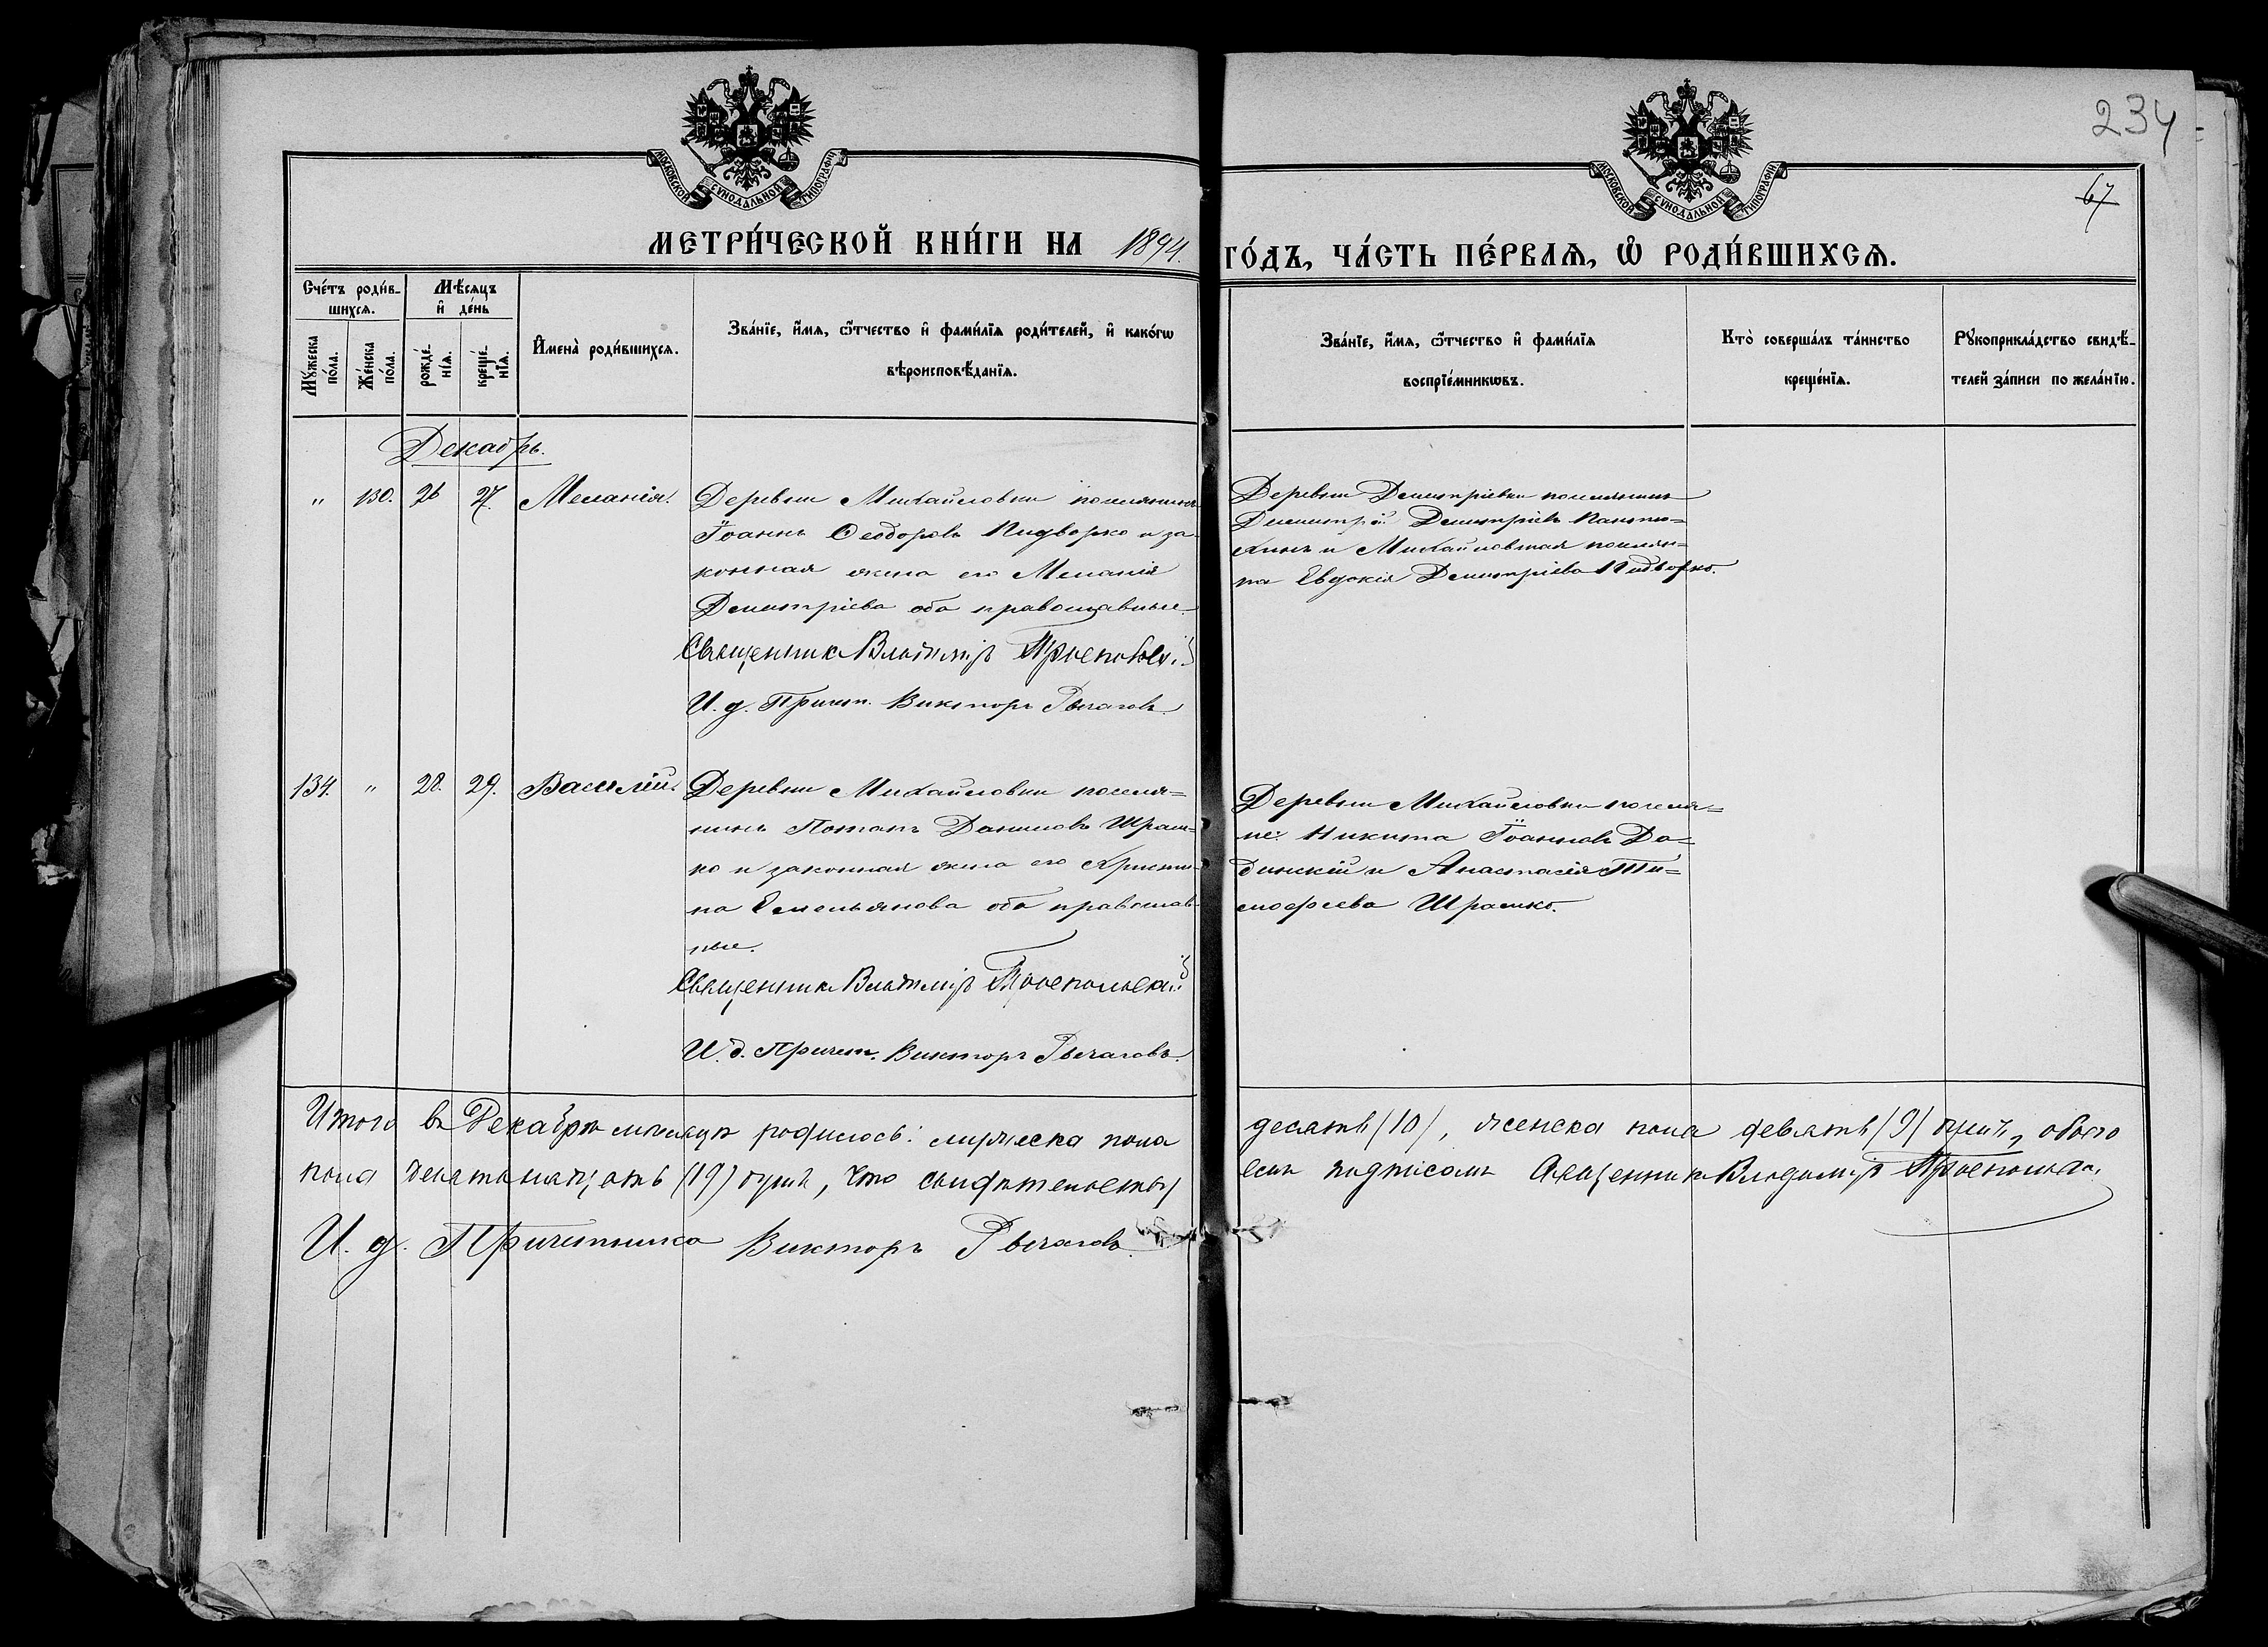 234
67
МОСКОВСКОЙ СѴНОДАЛЬНОЙ ТИПОГРАФІИ
МОСКОВСКОЙ СѴНОДАЛЬНОЙ ТИПОГРАФІИ
МЕТРИ́ЧЕСКОЙ КНИ́ГИ НА 1894. ГО́ДЪ, ЧА́СТЬ ПЕ́РВАѦ, Ѡ҆ РОДИ́ВШИХСѦ.
Сче́тъ роди́в-
шихсѧ.
Мꙋ́жеска по́ла.
Же́нска по́ла.
Мѣ́сѧцъ
и҆ де́нь
рожде́-нїѧ.
креще́-нїѧ.
И҆мена̀ роди́вшихсѧ.
Зва́нїе, и҆́мѧ, ѻ҆́тчество и҆ фами́лїѧ роди́телей, и҆ како́гѡ
вѣроисповѣ́данїѧ.
Зва́нїе, и҆́мѧ, ѻ҆́тчество и҆ фами́лїѧ
воспрїе́мникѡвъ.
Кто̀ соверша́лъ та́инство
креще́нїѧ.
Рꙋкоприкла́дство свидѣ́-
телей за́писи по жела́нїю.
Декабрь.
" 130. 26 27. Меланія.
Деревни Михайловки поселянинъ
Іоаннъ Ѳеодоровъ Пидворко и за-
конная жена его Меланія
Димитріева оба православные.
Священникъ Владиміръ
И. д. Причет. Викторъ Рычаговъ.
Деревни Димитріевки поселянинъ
Димитрій Димитріевъ Пантю=
хинъ и Михайловская поселян=
ка Евдокія Димитріева Пидворко.
134. " 28. 29. Василій.
Деревни Михайловки поселя=
нинъ Потапъ Даниловъ Шраш=
ко и законная жена его Христи-
на Емельянова оба православ-
ные.
Священникъ Владиміръ
И. д. Причет. Викторъ Рычаговъ.
Деревни Михайловки поселя=
не: Никита Іоанновъ До=
динскій и Анастасія Ти=
моѳеева Шрашко.
Итого въ Декабрѣ мѣсяцѣ родилось: мужеска пола десять (10), женска пола девять (9) душъ, обоего
пола девятьнадцать (19) душъ, что свидѣтельству емъ подписомъ Священникъ Владиміръ
И. д. Причетника Викторъ Рычаговъ.